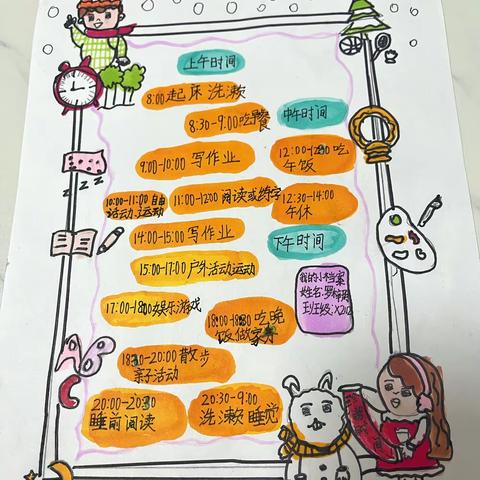 上午时间
8:00起床 洗漱
8:30-9:00吃早餐
中午时间
9:00-10:00 写作业
12:00-12:30吃
午饭
10:00-11:00自由
活动、运动
11:00-12:00 阅读或练字
12:30-14:00
午休
14:00-15:00 写作业
下午时间
15:00-17:00户外活动运动
我的小档案
姓名:罗
班级:
17:00-18:00娱乐游戏
18:00-18:30吃晚
饭做家务
18:30-20:00散步
亲子活动
20:00-20:30
睡前阅读
20:30-9:00
洗漱睡觉
zzz